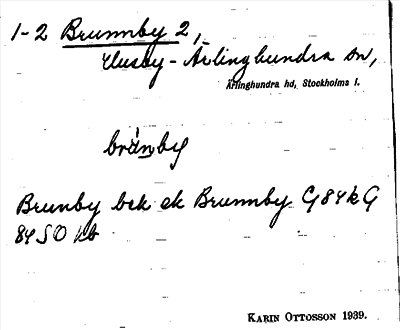 1-2 Brunnby 2,
Husby-Ärlinghundra sn,
Ärlinghundra hd, Stockholms l.
brùn̄by
Brunby bek ek Brunnby G84kG
84SO kb
KARIN OTTOSSON 1939.